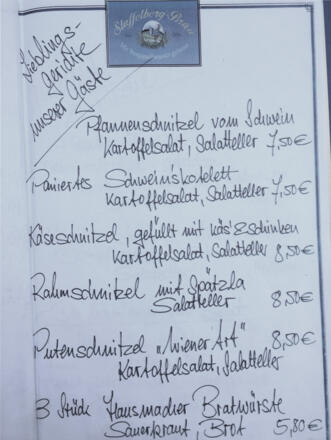 Staffelberg-Bräu
Lieblings-
gerichte
unserer Gäste
Pfannenschnitzel vom Schwein
Kartoffelsalat, Salatteller 7,50€
Paniertes Schweinskotelett
Kartoffelsalat, Salatteller 7,50€
Käseschnitzel, gefüllt mit Käs' & Schinken
Kartoffelsalat, Salatteller 8,50€
Rahmschnitzel mit Spätzla
Salatteller 8,50€
Putenschnitzel "Wiener Art" 8,50€
Kartoffelsalat, Salatteller
3 Stück Hausmacher Bratwürste
Sauerkraut, Brot 5,80€